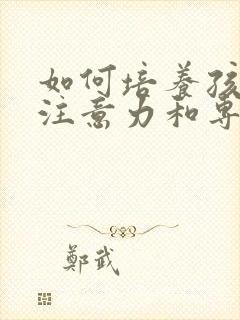 如何培養孩
注意力和專
鄭武